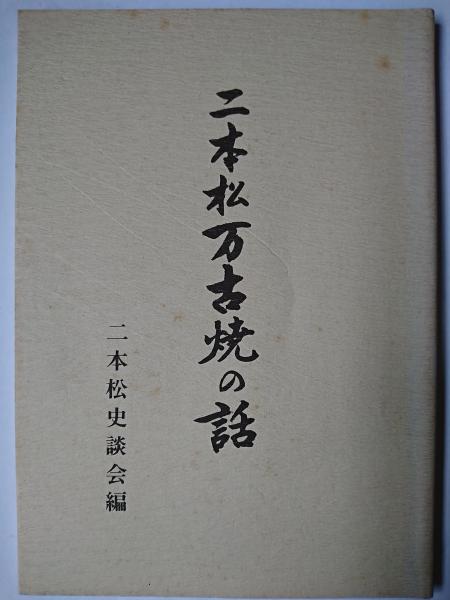 二本松万古焼の話
二本松史談会編